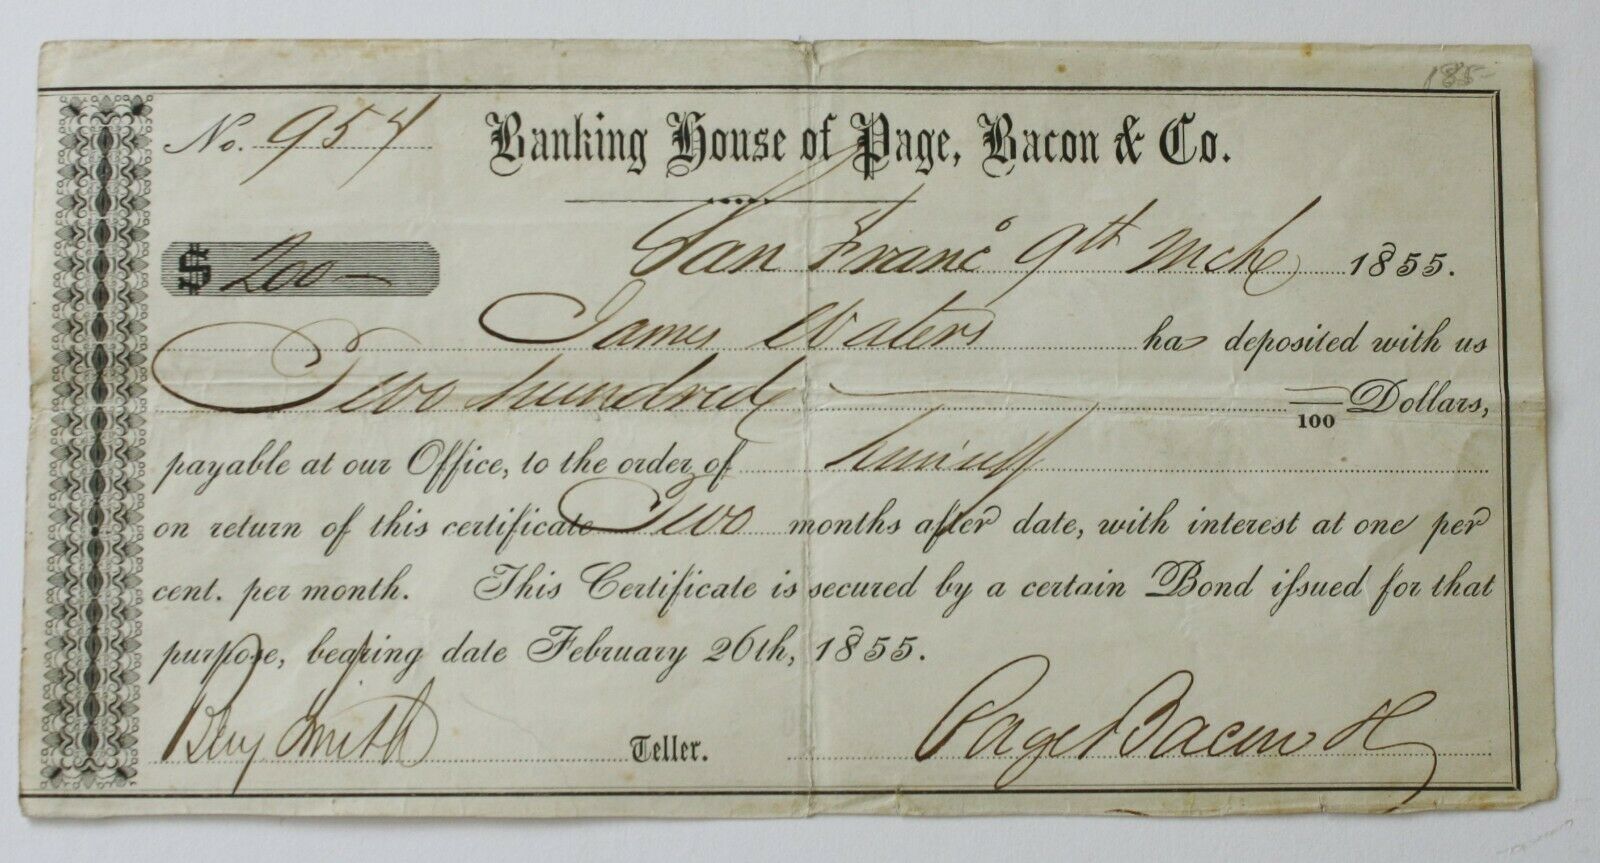 185-
No. 954 Banking House of Page, Bacon & Co.
$ 200— San Franco 9th Mch 1855.
James Waters has deposited with us
Two hundred — /100 Dollars,
payable at our Office, to the order of himself
on return of this certificate Two months after date, with interest at one per
cent. per month. This Certificate is secured by a certain Bond issued for that
purpose, bearing date February 26th, 1855.
Benj Smith Teller. Page Bacon & Co